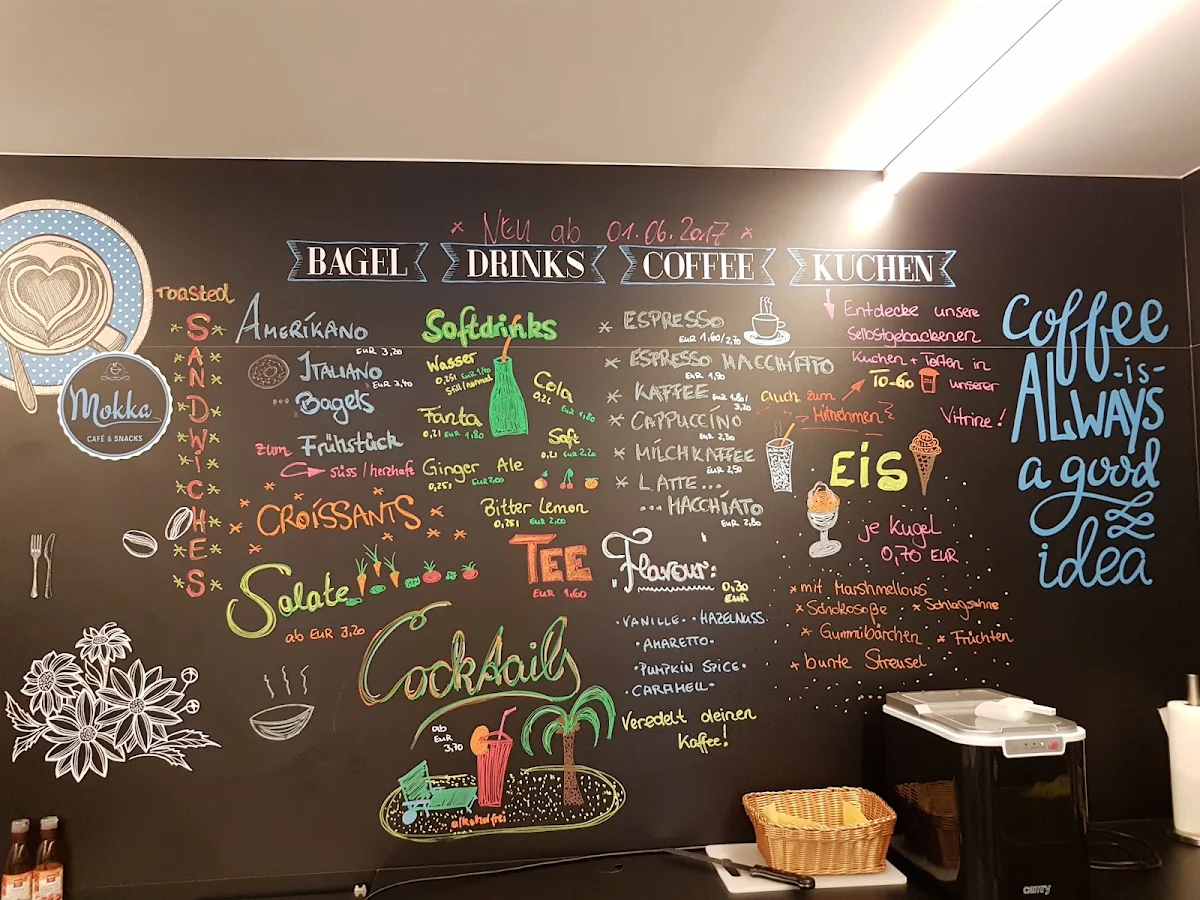 * NEU ab 01.06.2017 *
BAGEL
DRINKS
COFFEE
KUCHEN
Mokka
CAFÉ & SNACKS
Toasted
SANDWICHES
AMERIKANO
EUR 3,20
ITALIANO
EUR 3,40
Bagels
zum Frühstück
süss / herzhaft
CROISSANTS
Salate
ab EUR 3,20
Softdrinks
Wasser
0,25l EUR
still/normal
Cola
0,2l EUR 1,80
Fanta
0,2l EUR 1,80
Saft
0,2l EUR 2,20
Ginger Ale
0,25l EUR 2,00
Bitter Lemon
0,25l EUR 2,00
TEE
EUR 1,60
Cocktails
ab
EUR
3,70
alkoholfrei
* ESPRESSO
EUR 1,60/2,70
* ESPRESSO MACCHIATO
EUR 1,80
* KAFFEE
EUR 1,80/
3,20
* CAPPUCCINO
EUR 2,30
* MILCHKAFFEE
EUR 2,50
* LATTE...
... MACCHIATO
EUR 2,80
Flavour:
0,30
EUR
· VANILLE · · HAZELNUSS ·
· AMARETTO ·
· PUMPKIN SPICE ·
· CARAMELL ·
Veredelt deinen
Kaffee!
Entdecke unsere
Selbstgebackenen
Kuchen + Torten in
unserer
Vitrine!
auch zum
Mitnehmen
To-Go
EIS
je Kugel
0,70 EUR
* mit Marshmellows
* Schokosoße * Schlagsahne
* Gummibärchen * Früchten
* bunte Streusel
coffee
-is-
ALWAYS
a good
idea
camry